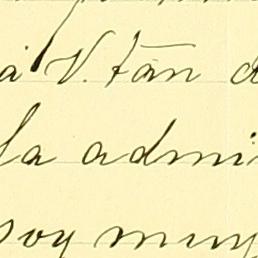 á V. tan
la admi
soy muy